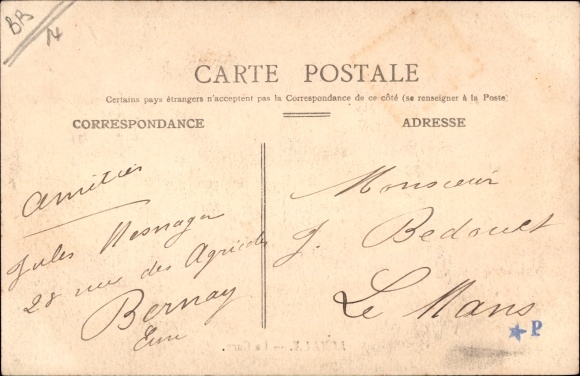 BB
14
CARTE POSTALE
Certains pays étrangers n'acceptent pas la Correspondance de ce côté (se renseigner à la Poste)
CORRESPONDANCE
Amitiés
Jules
28 rue des
Bernay
Eure
ADRESSE
Monsieur
J. Bedouet
Le Mans
P